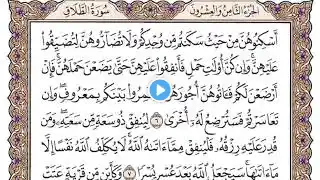 الجزء الثامن والعشرون سورة الطلاق
أَسْكِنُوهُنَّ مِنْ حَيْثُ سَكَنتُم مِّن وُجْدِكُمْ وَلَا تُضَآرُّوهُنَّ لِتُضَيِّقُوا۟
عَلَيْهِنَّ ۚ وَإِن كُنَّ أُو۟لَـٰتِ حَمْلٍ فَأَنفِقُوا۟ عَلَيْهِنَّ حَتَّىٰ يَضَعْنَ حَمْلَهُنَّ ۚ فَإِنْ
أَرْضَعْنَ لَكُمْ فَـَٔاتُوهُنَّ أُجُورَهُنَّ ۖ وَأْتَمِرُوا۟ بَيْنَكُم بِمَعْرُوفٍ ۖ وَإِن
تَعَاسَرْتُمْ فَسَتُرْضِعُ لَهُۥٓ أُخْرَىٰ ٦ لِيُنفِقْ ذُو سَعَةٍ مِّن سَعَتِهِۦ ۖ وَمَن
قُدِرَ عَلَيْهِ رِزْقُهُۥ فَلْيُنفِقْ مِمَّآ ءَاتَىٰهُ ٱللَّهُ ۚ لَا يُكَلِّفُ ٱللَّهُ نَفْسًا إِلَّا
مَآ ءَاتَىٰهَا ۚ سَيَجْعَلُ ٱللَّهُ بَعْدَ عُسْرٍ يُسْرًا ٧ وَكَأَيِّن مِّن قَرْيَةٍ عَتَتْ